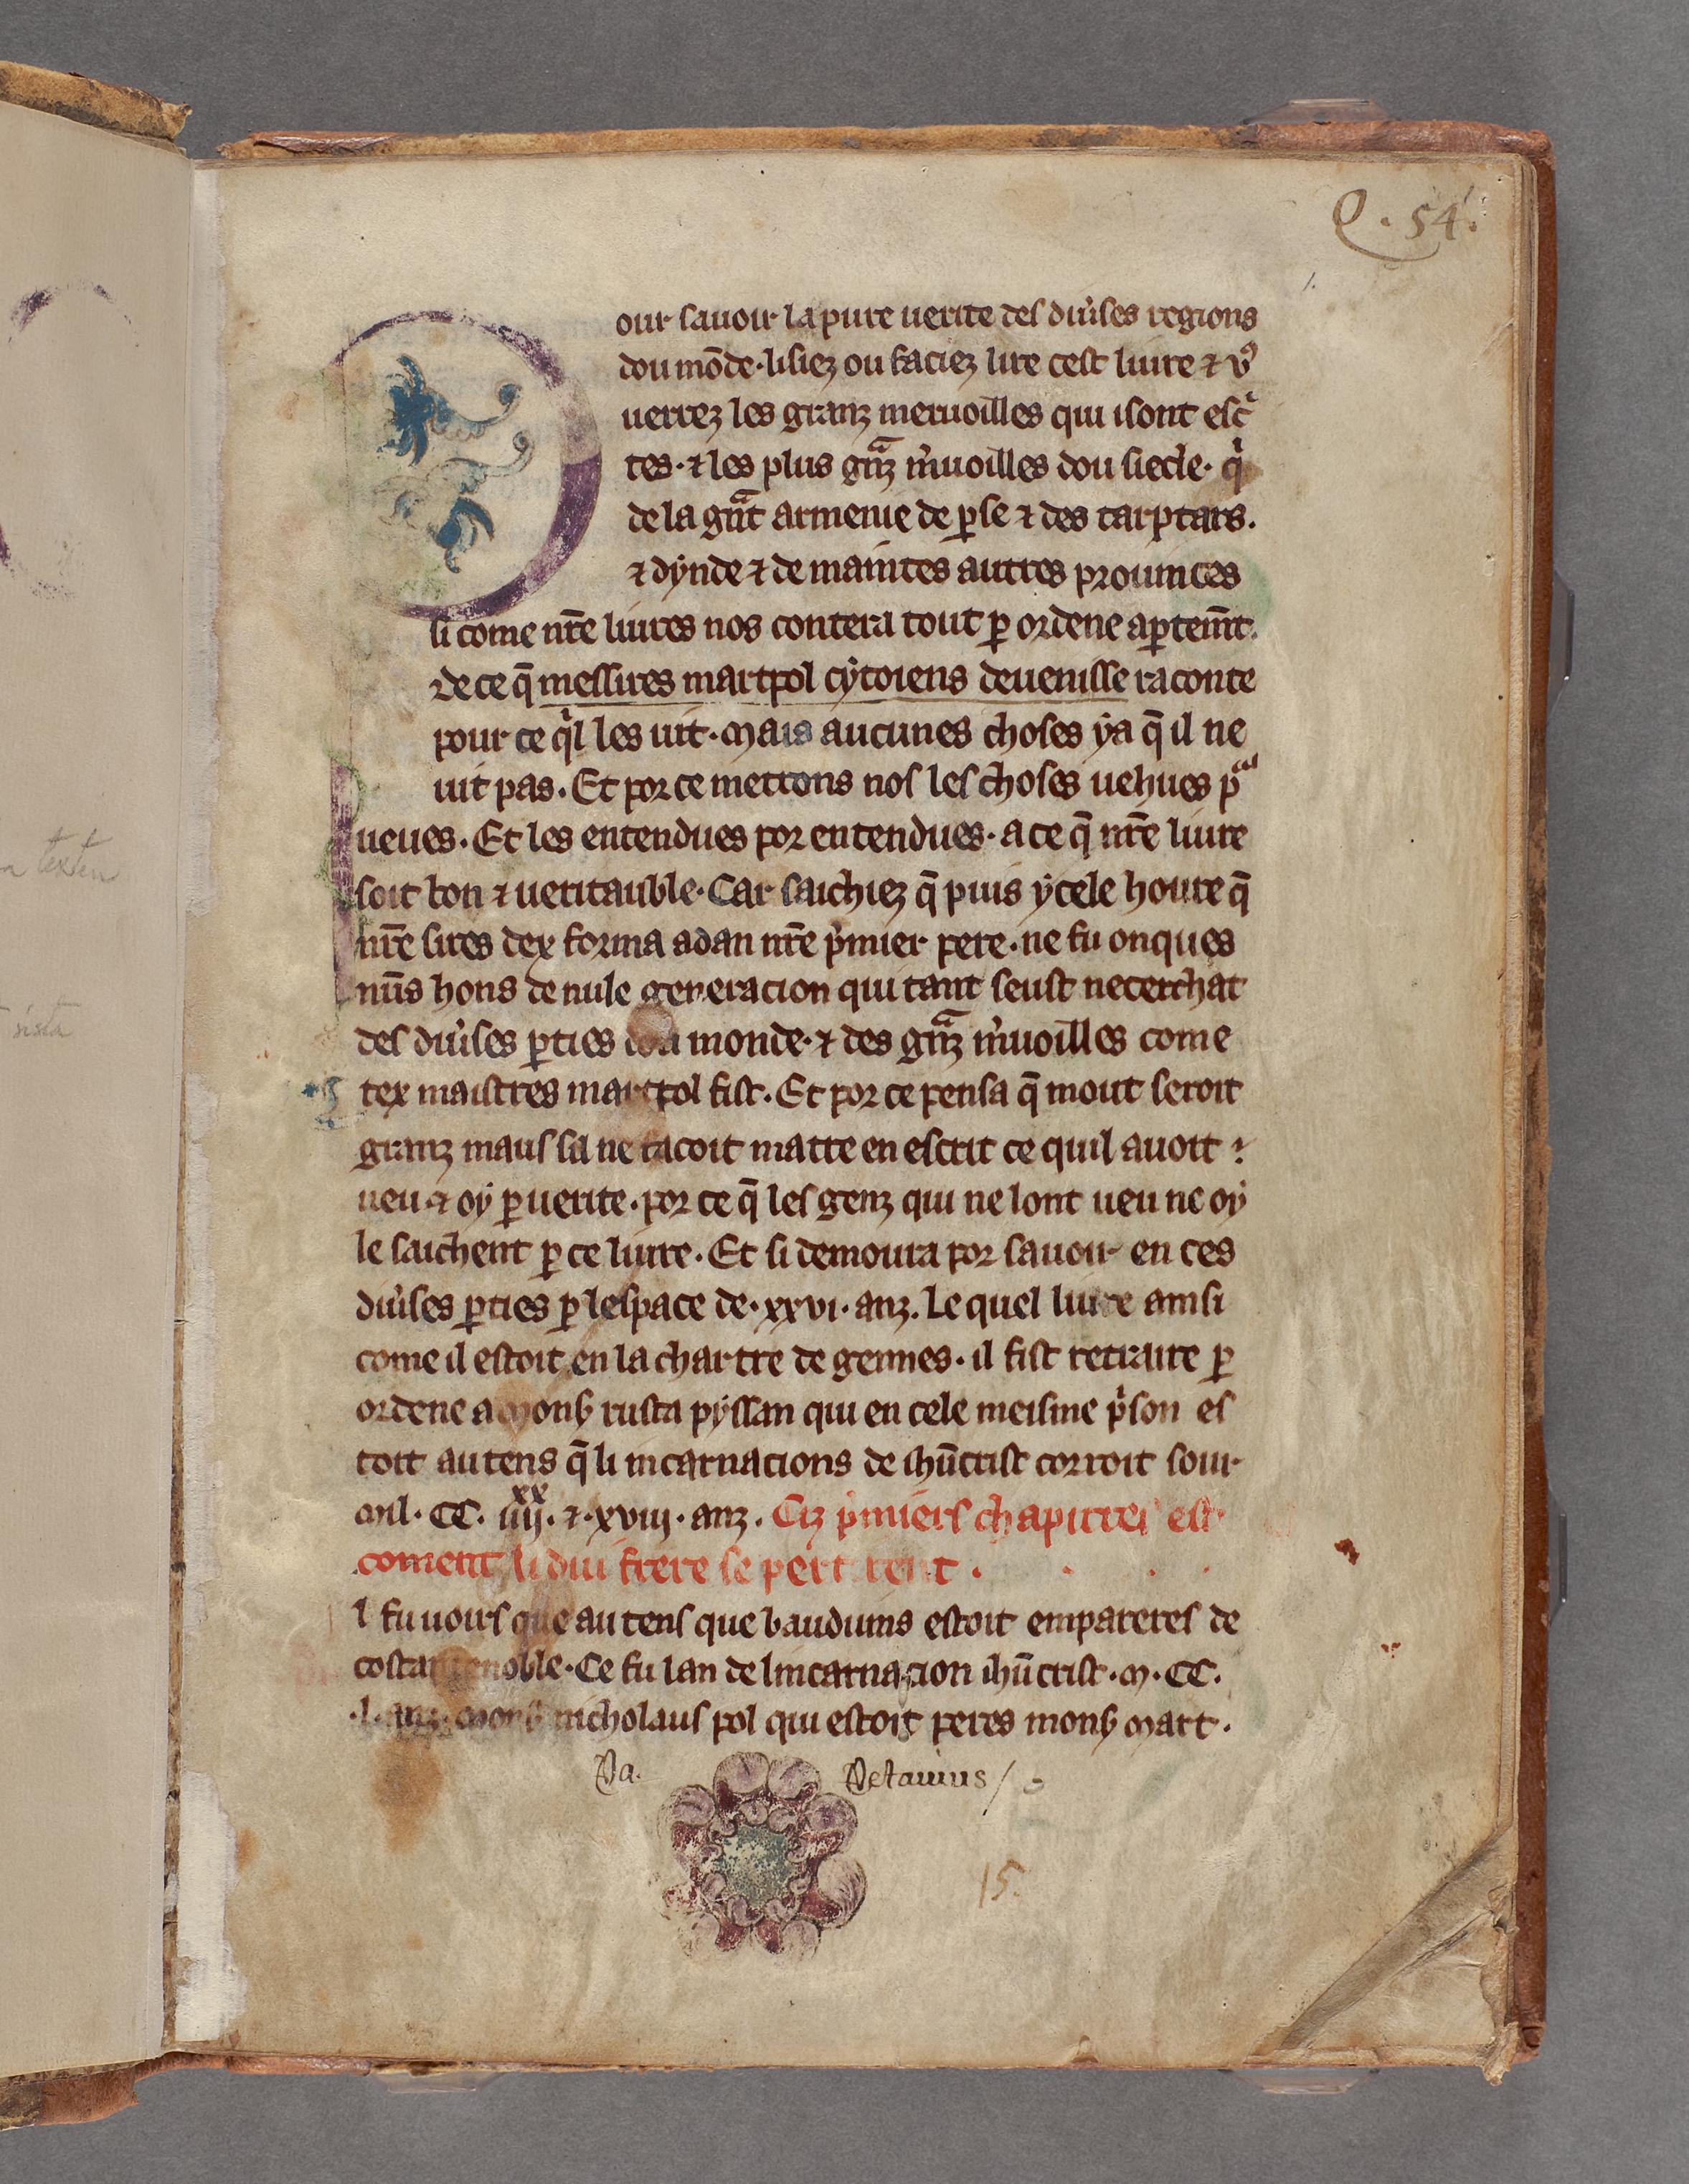 Q. 54.
1.
our sauoir la pure uerite des diu'ses regions
dou mōde· lisiez ou faciez lire cest liure ⁊ vꝰ
uerrez les granz meruoilles qui isont escͥ
tes· ⁊ les plus gnͣz m'uoilles dou siecle· qͥ
de la gnͣt armenie de ꝑse ⁊ des tarptars.
⁊ dÿnde ⁊ de maintes autres prouinces
si come nr̄e liures nos contera tout ꝑ ordene aꝑtemt̄.
de ce q̄ messires martpol cÿtoiens deuenisse raconte
pour ce qͥl les uit· Mais aucunes choses ÿa q̄ il ne
uit pas. Et por ce mettons nos les choses uehues p
ueues. Et les entendues por entendues· a ce q̄ nr̄e liure
soit bon ⁊ ueritauble· Car saichiez q̄ puis ÿcele houre q̄
nr̄e sires dex forma adan nr̄e pͥmier pere· ne fu onques
nūs hons de nule generacion qui tant seust necerchat
des diu'ses ꝑties dou monde· ⁊ des gnͣz m'uoilles come
tex maistres martpol fist. Et por ce pensa q̄ mout seroit
granz maus sil ne facoit matre en escrit ce quil auoit ⁊
ueu ⁊ oÿ ꝑ uerite· por ce q̄ les genz qui ne lont ueu ne oÿ
le saichent ꝑ ce liure. Et si demoura por sauoir en ces
diu'ses ꝑties ꝑ lespace de· xxvi· anz. Le quel liure ainsi
come il estoit en la chartre de gennes· il fist retraire ꝑ
ordene a Monß rusta pÿssan qui en cele meisme pͥson es
toit au tens q̄ li incarnacions de ihūcrist corroit sour
mil· CC. iiijˣˣ· ⁊· xviij· anz. Ciz pͥmiers chapitres est
coment li dui frere se pert rent·
l fu uoirs que au tens que bauduins estoit empareres de
costantenoble· Ce fu lan de lincarnacion ihūcrist· M· CC.
·l· anz· Monß nicholaus pol qui estoit peres monß Mart·
Pa. Petauius /
15.